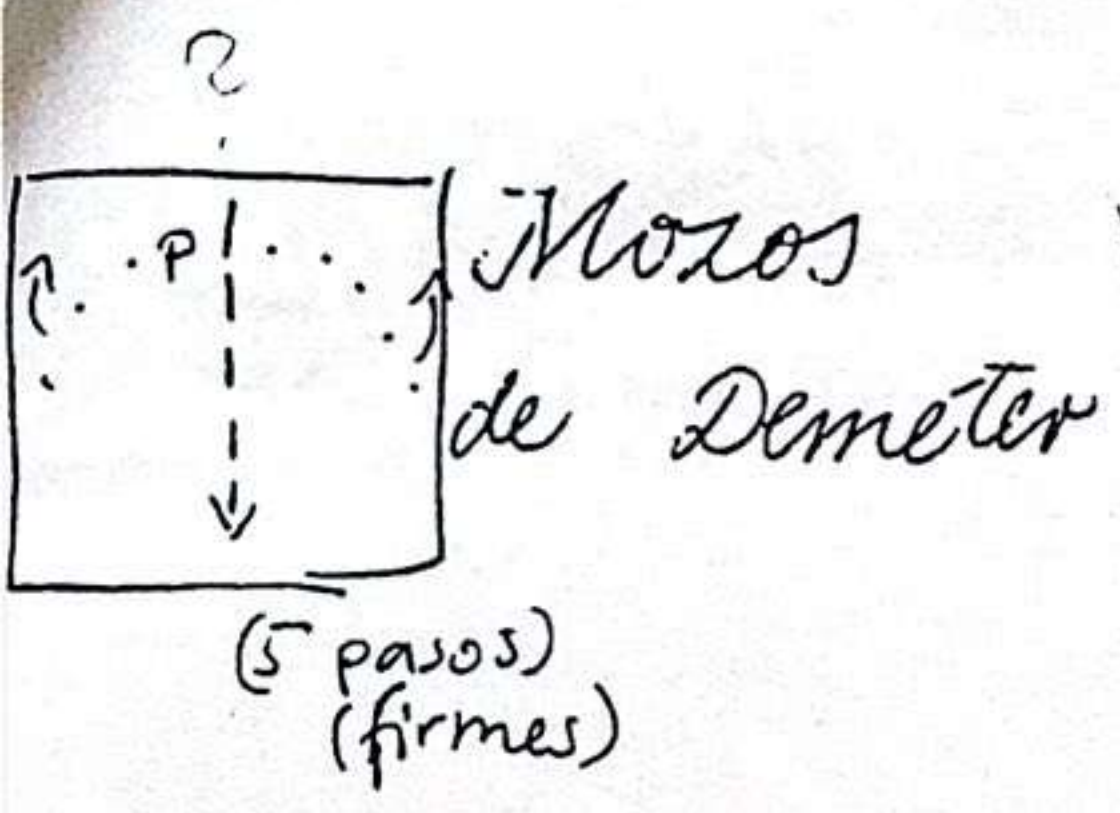 ?
P
Mozos
de Deméter
(5 pasos)
(firmes)